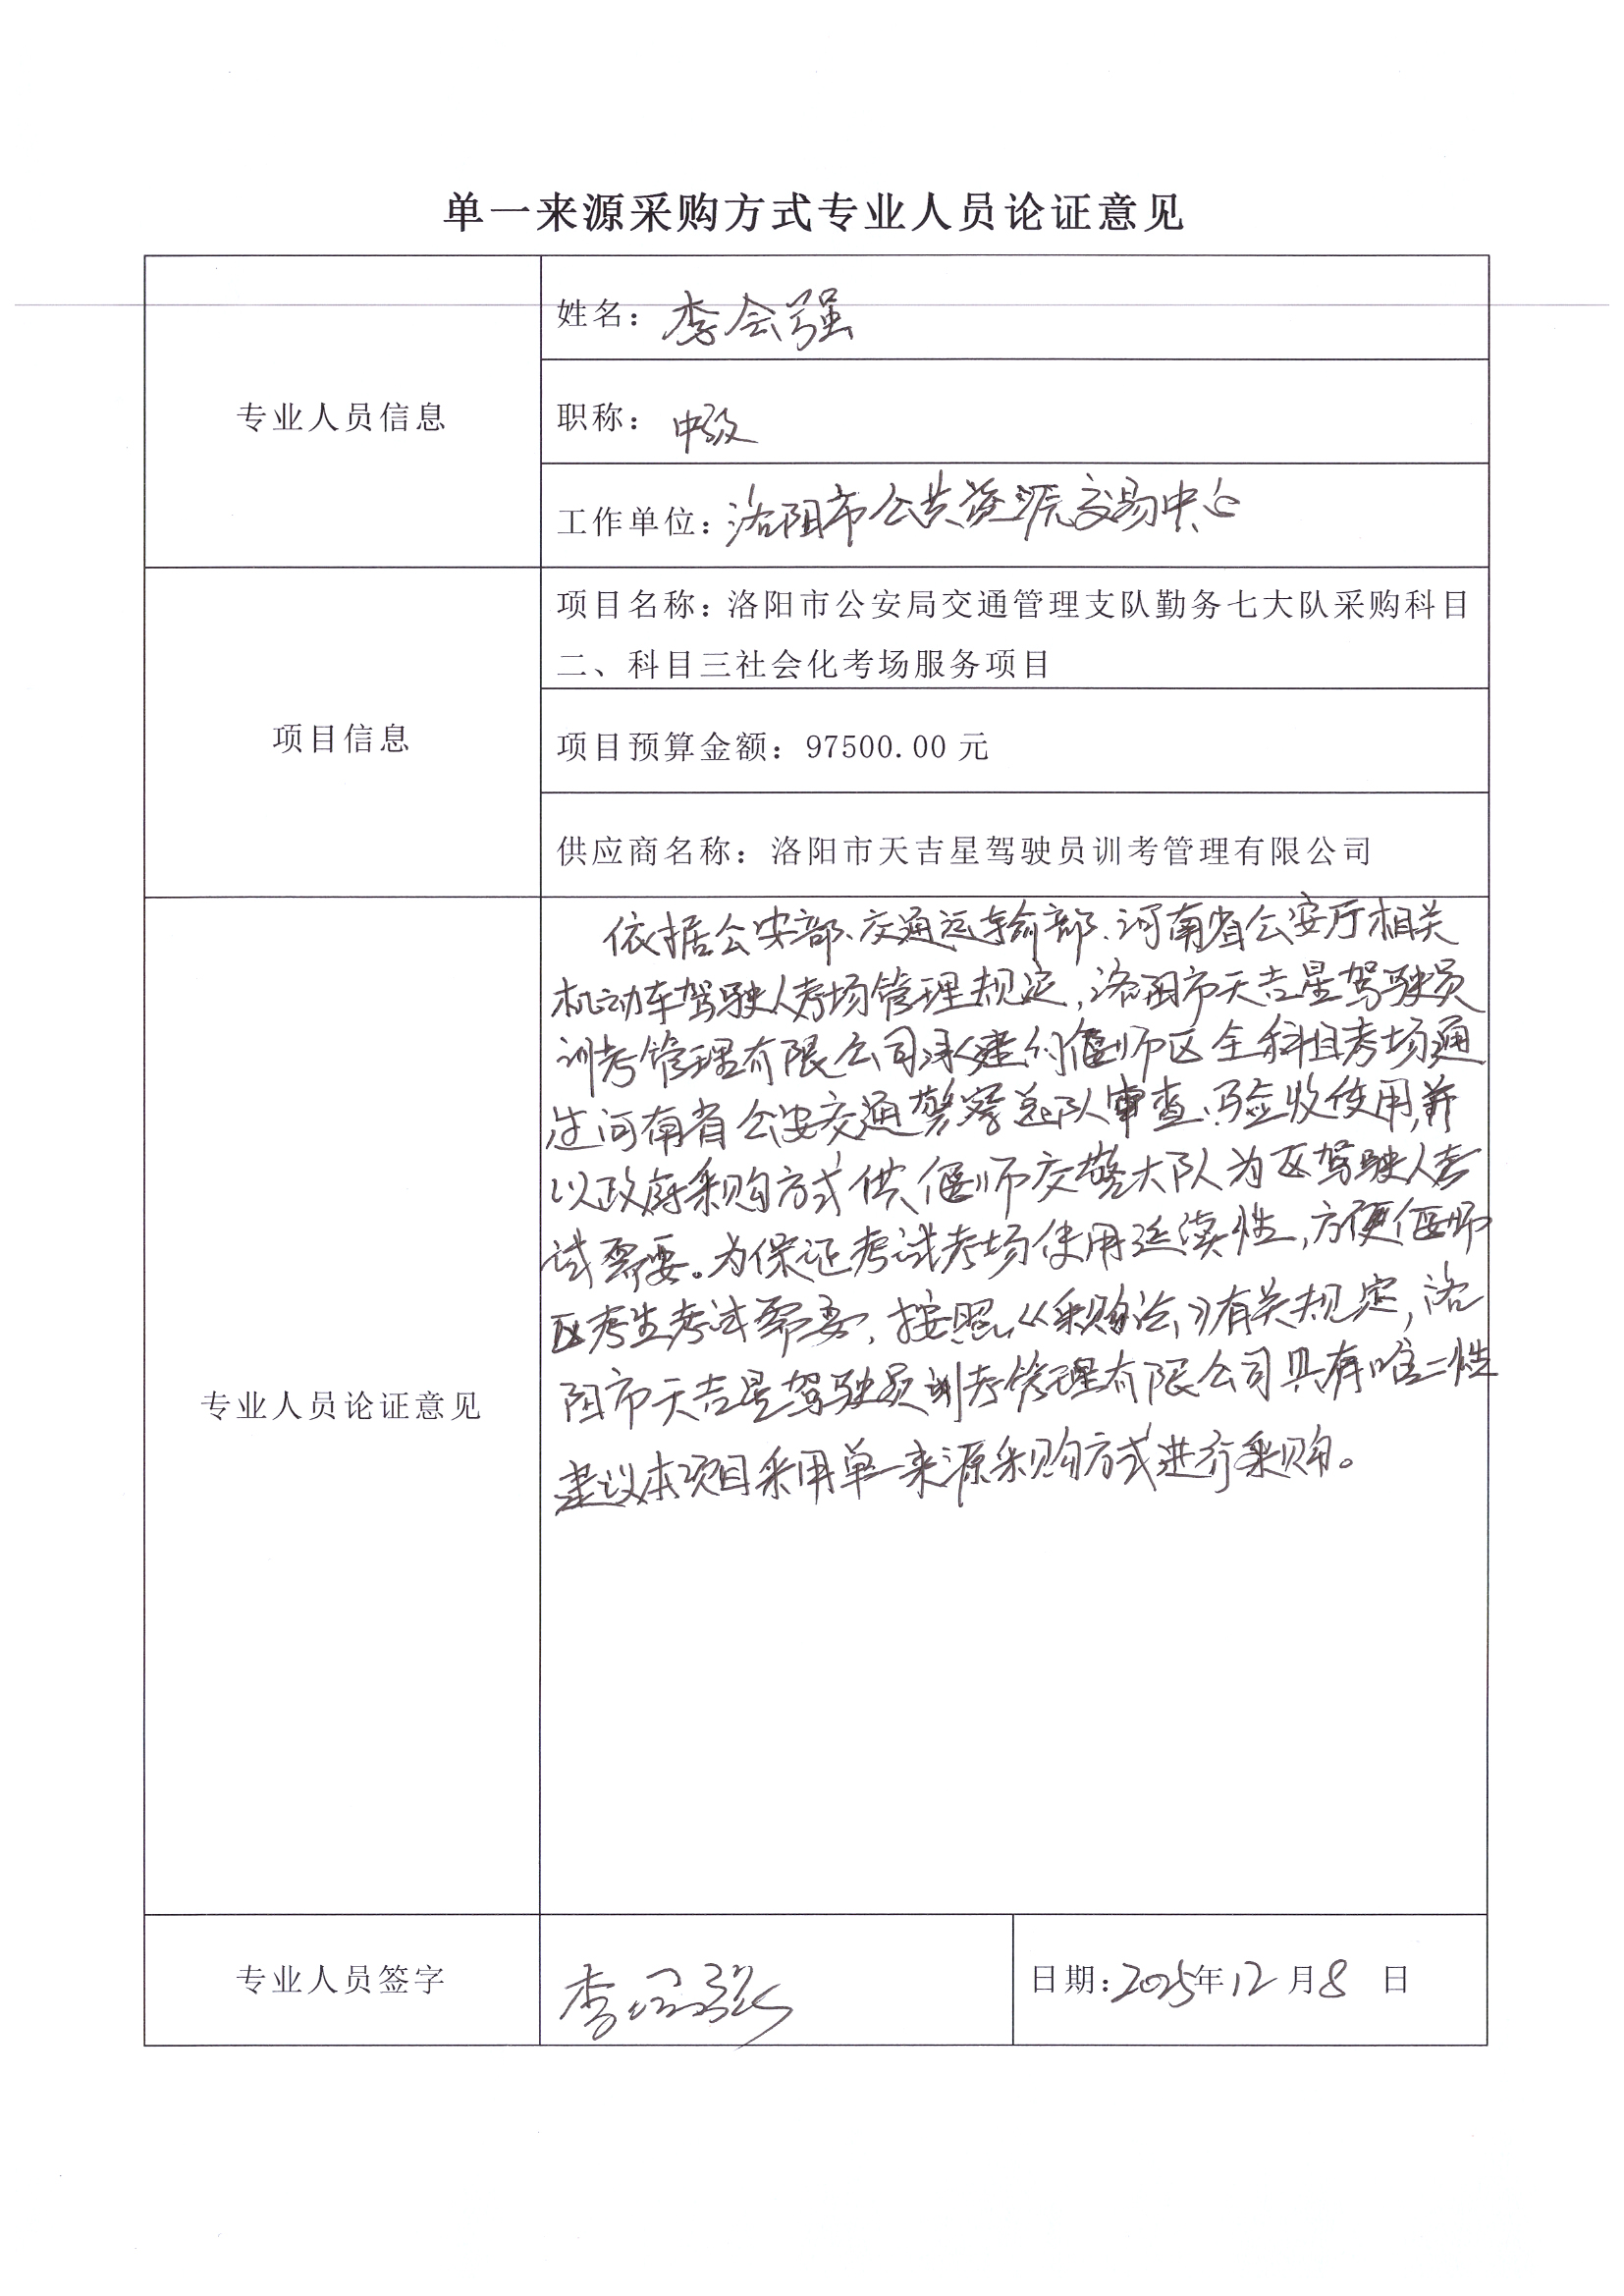 单一来源采购方式专业人员论证意见
专业人员信息
姓名：李会强
职称：中级
工作单位：洛阳市公共资源交易中心
项目信息
项目名称：洛阳市公安局交通管理支队勤务七大队采购科目
二、科目三社会化考场服务项目
项目预算金额：97500.00 元
供应商名称：洛阳市天吉星驾驶员训考管理有限公司
专业人员论证意见
依据公安部、交通运输部、河南省公安厅相关
机动车驾驶人考场管理规定，洛阳市天吉星驾驶员
训考管理有限公司承建的偃师区全科目考场通
过河南省公安交通警察总队审查、验收使用，并
以政府采购方式供偃师交警大队为区驾驶人考
试需要。为保证考试考场使用延续性，方便偃师
区考生考试需要，按照《采购法》有关规定，洛
阳市天吉星驾驶员训考管理有限公司具有唯一性
建议本项目采用单一来源采购方式进行采购。
专业人员签字
李会强
日期：2025年12月8日